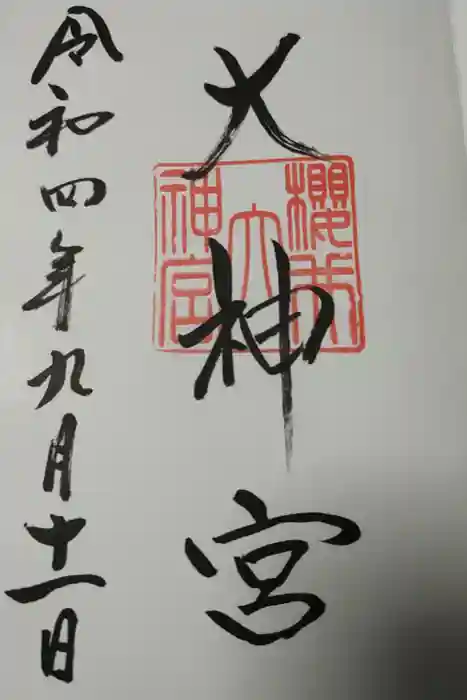 大神宮
櫻木
大
神宮
令和四年九月十一日